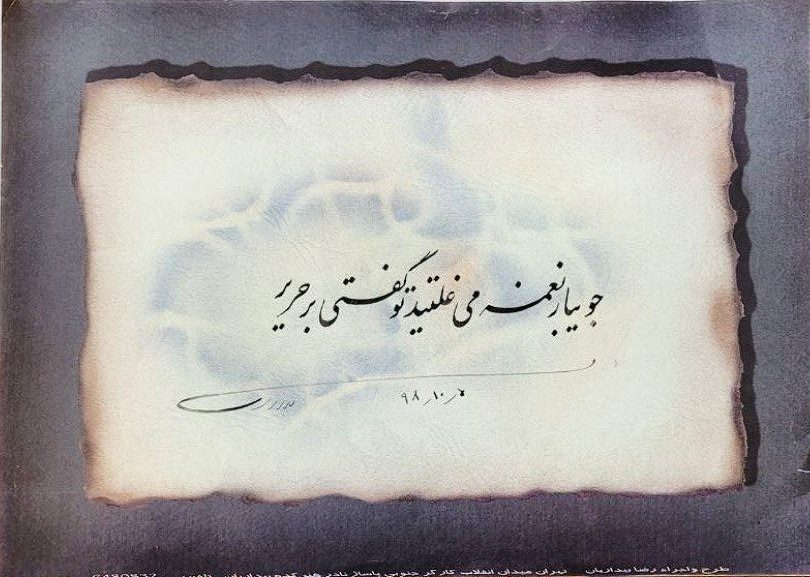 جویبار نغمه می غلتید توگفتی بر حریر
۹۸٫۱۰٫۷
طرح واجراء رضا بیداریان تهران میدان انقلاب کارگر جنوبی پاساژ نادر هنرکده بیداریان تلفن